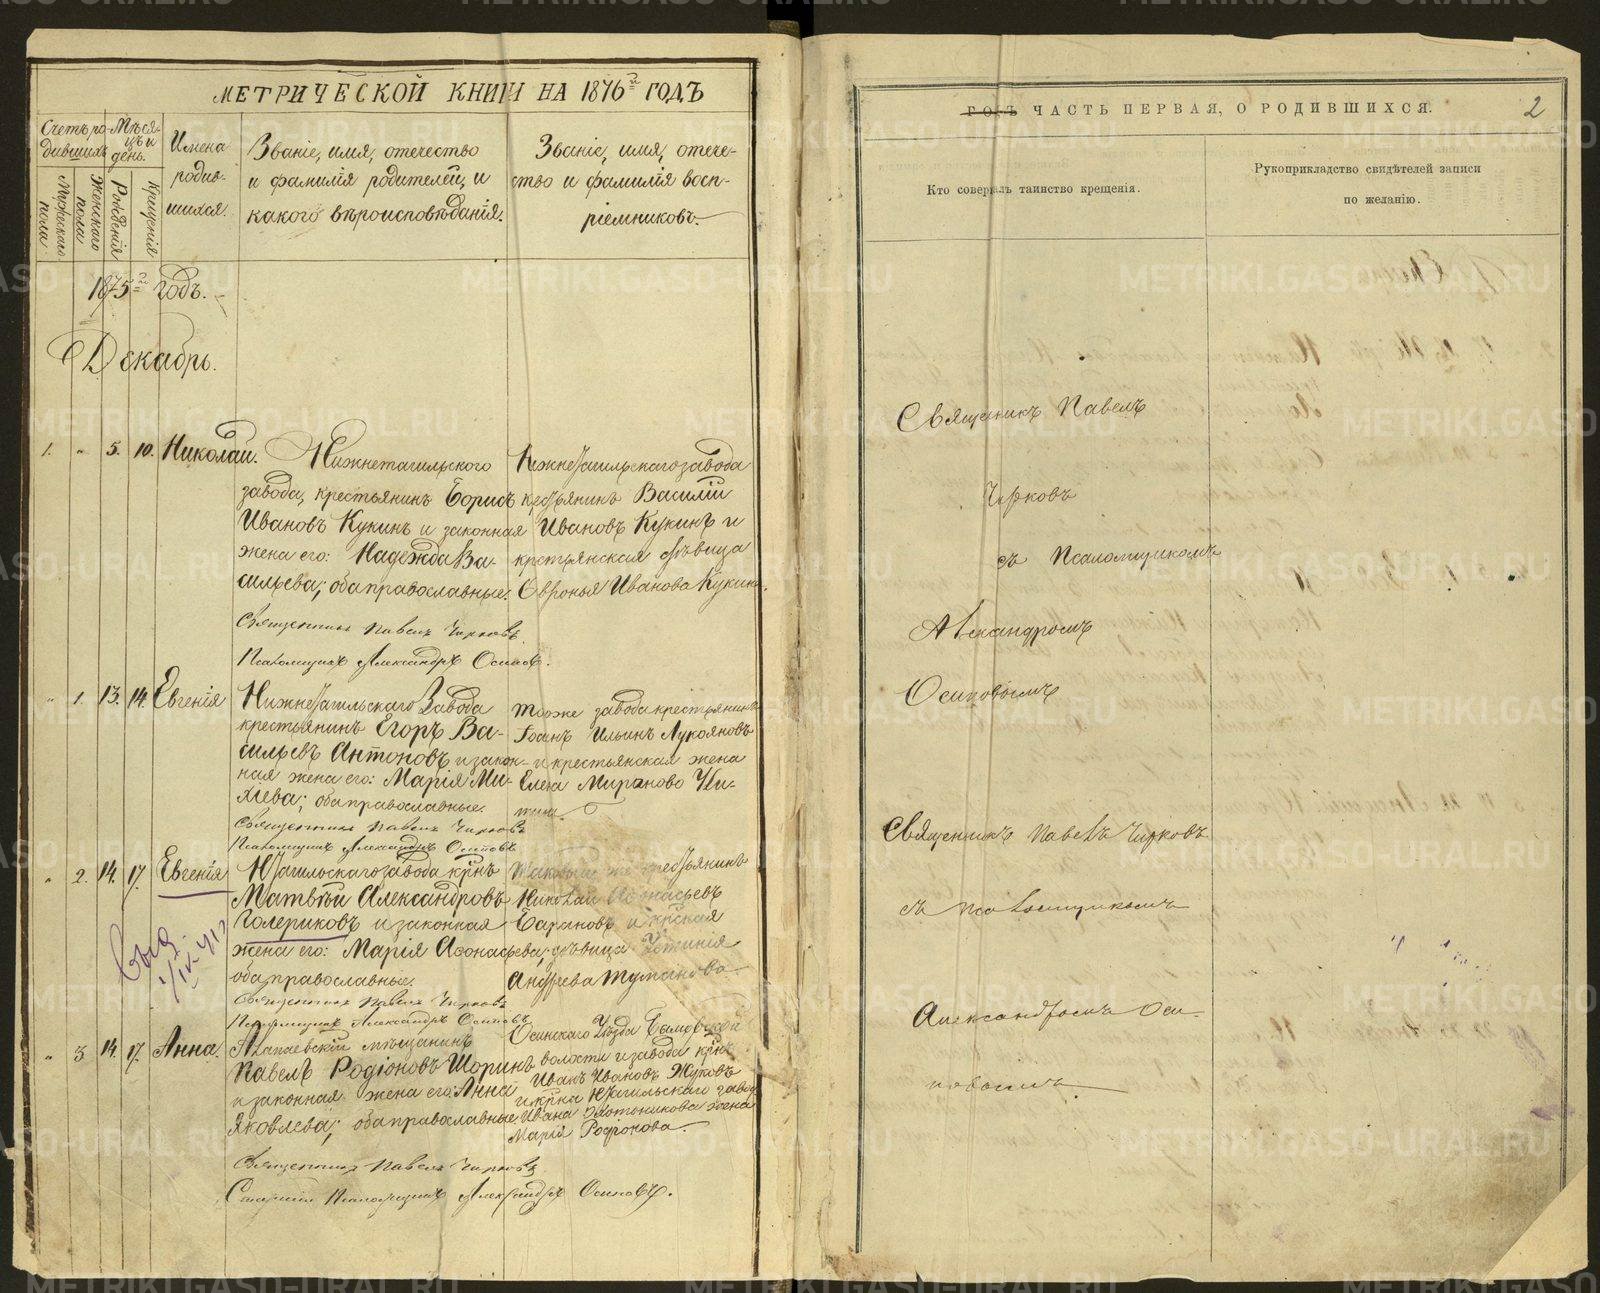 МЕТРИЧЕСКОЙ КНИГИ НА 1876й ГОДЪ
Счетъ ро-
дившихъ
Мѣся-
цъ и
день.
Имена
родив-
шихся.
Званіе, имя, отечество
и фамилія родителей, и
какого вѣроисповѣданія.
Званіе, имя, отече-
ство и фамилія восп-
ріемниковъ.
Мужскаго
пола
Женскаго
пола
Рожденія
Крещенія
1875й годъ.
Декабрь.
1. „ 5. 10. Николай.
Нижнетагильского
завода, крестьянинъ Борисъ
Ивановъ Кукинъ и законная
жена его: Надежда Ва-
сильева; оба православные.
Нижнетагильскаго завода
крестьянинъ Василій
Ивановъ Кукинъ и
крестьянская дѣвица
Иванова Кукина
Священникъ Павелъ Чирковъ
Псаломщикъ Александръ Осиповъ.
„ 1. 13. 14. Евгенія
Нижнетагильскаго Завода
крестьянинъ Егоръ Ва-
сильевъ Антоновъ и закон-
ная жена его: Марія Ми-
хіева; оба православные.
тогоже завода крестьянинъ
Ильинъ Лукояновъ
и крестьянская жена
Елена
Священникъ Павелъ Чирковъ
Псаломщикъ Александръ Осиповъ
„ 2. 14. 17. Евгенія
НТагильскаго завода крнъ
Матвѣй Александровъ
Голериковъ и законная
жена его: Марія Афонасьева;
оба православные.
крестьянинъ
Николай Афонасьевъ
Бариновъ и крская
дѣвица Устинія
Андреева Туманова
Священникъ Павелъ Чирковъ
Псаломщикъ Александръ Осиповъ
„ 3 14. 17. Анна.
Алапаевскій мѣщанинъ
Павелъ Родіоновъ Шоринъ
и законная жена его: Анна
Яковлева; оба православные
Осинскаго Уѣзда
волости и завода крнъ
Иванъ Ивановъ Жуковъ
и крна НТагильскаго завод.
Ивана жена
Марія
Священникъ Павелъ Чирковъ
Псаломщикъ Александръ Осиповъ.
ГОДЪ ЧАСТЬ ПЕРВАЯ, О РОДИВШИХСЯ.
2
Кто совершалъ таинство крещенія.
Рукоприкладство свидѣтелей записи
по желанію.
Священникъ Павелъ
Чирковъ
съ Псаломщикомъ
Александромъ
Осиповымъ
Священникъ Павелъ Чирковъ
съ псаломщикомъ
Александромъ Оси-
повымъ
METRIKI.GASO-URAL.RU